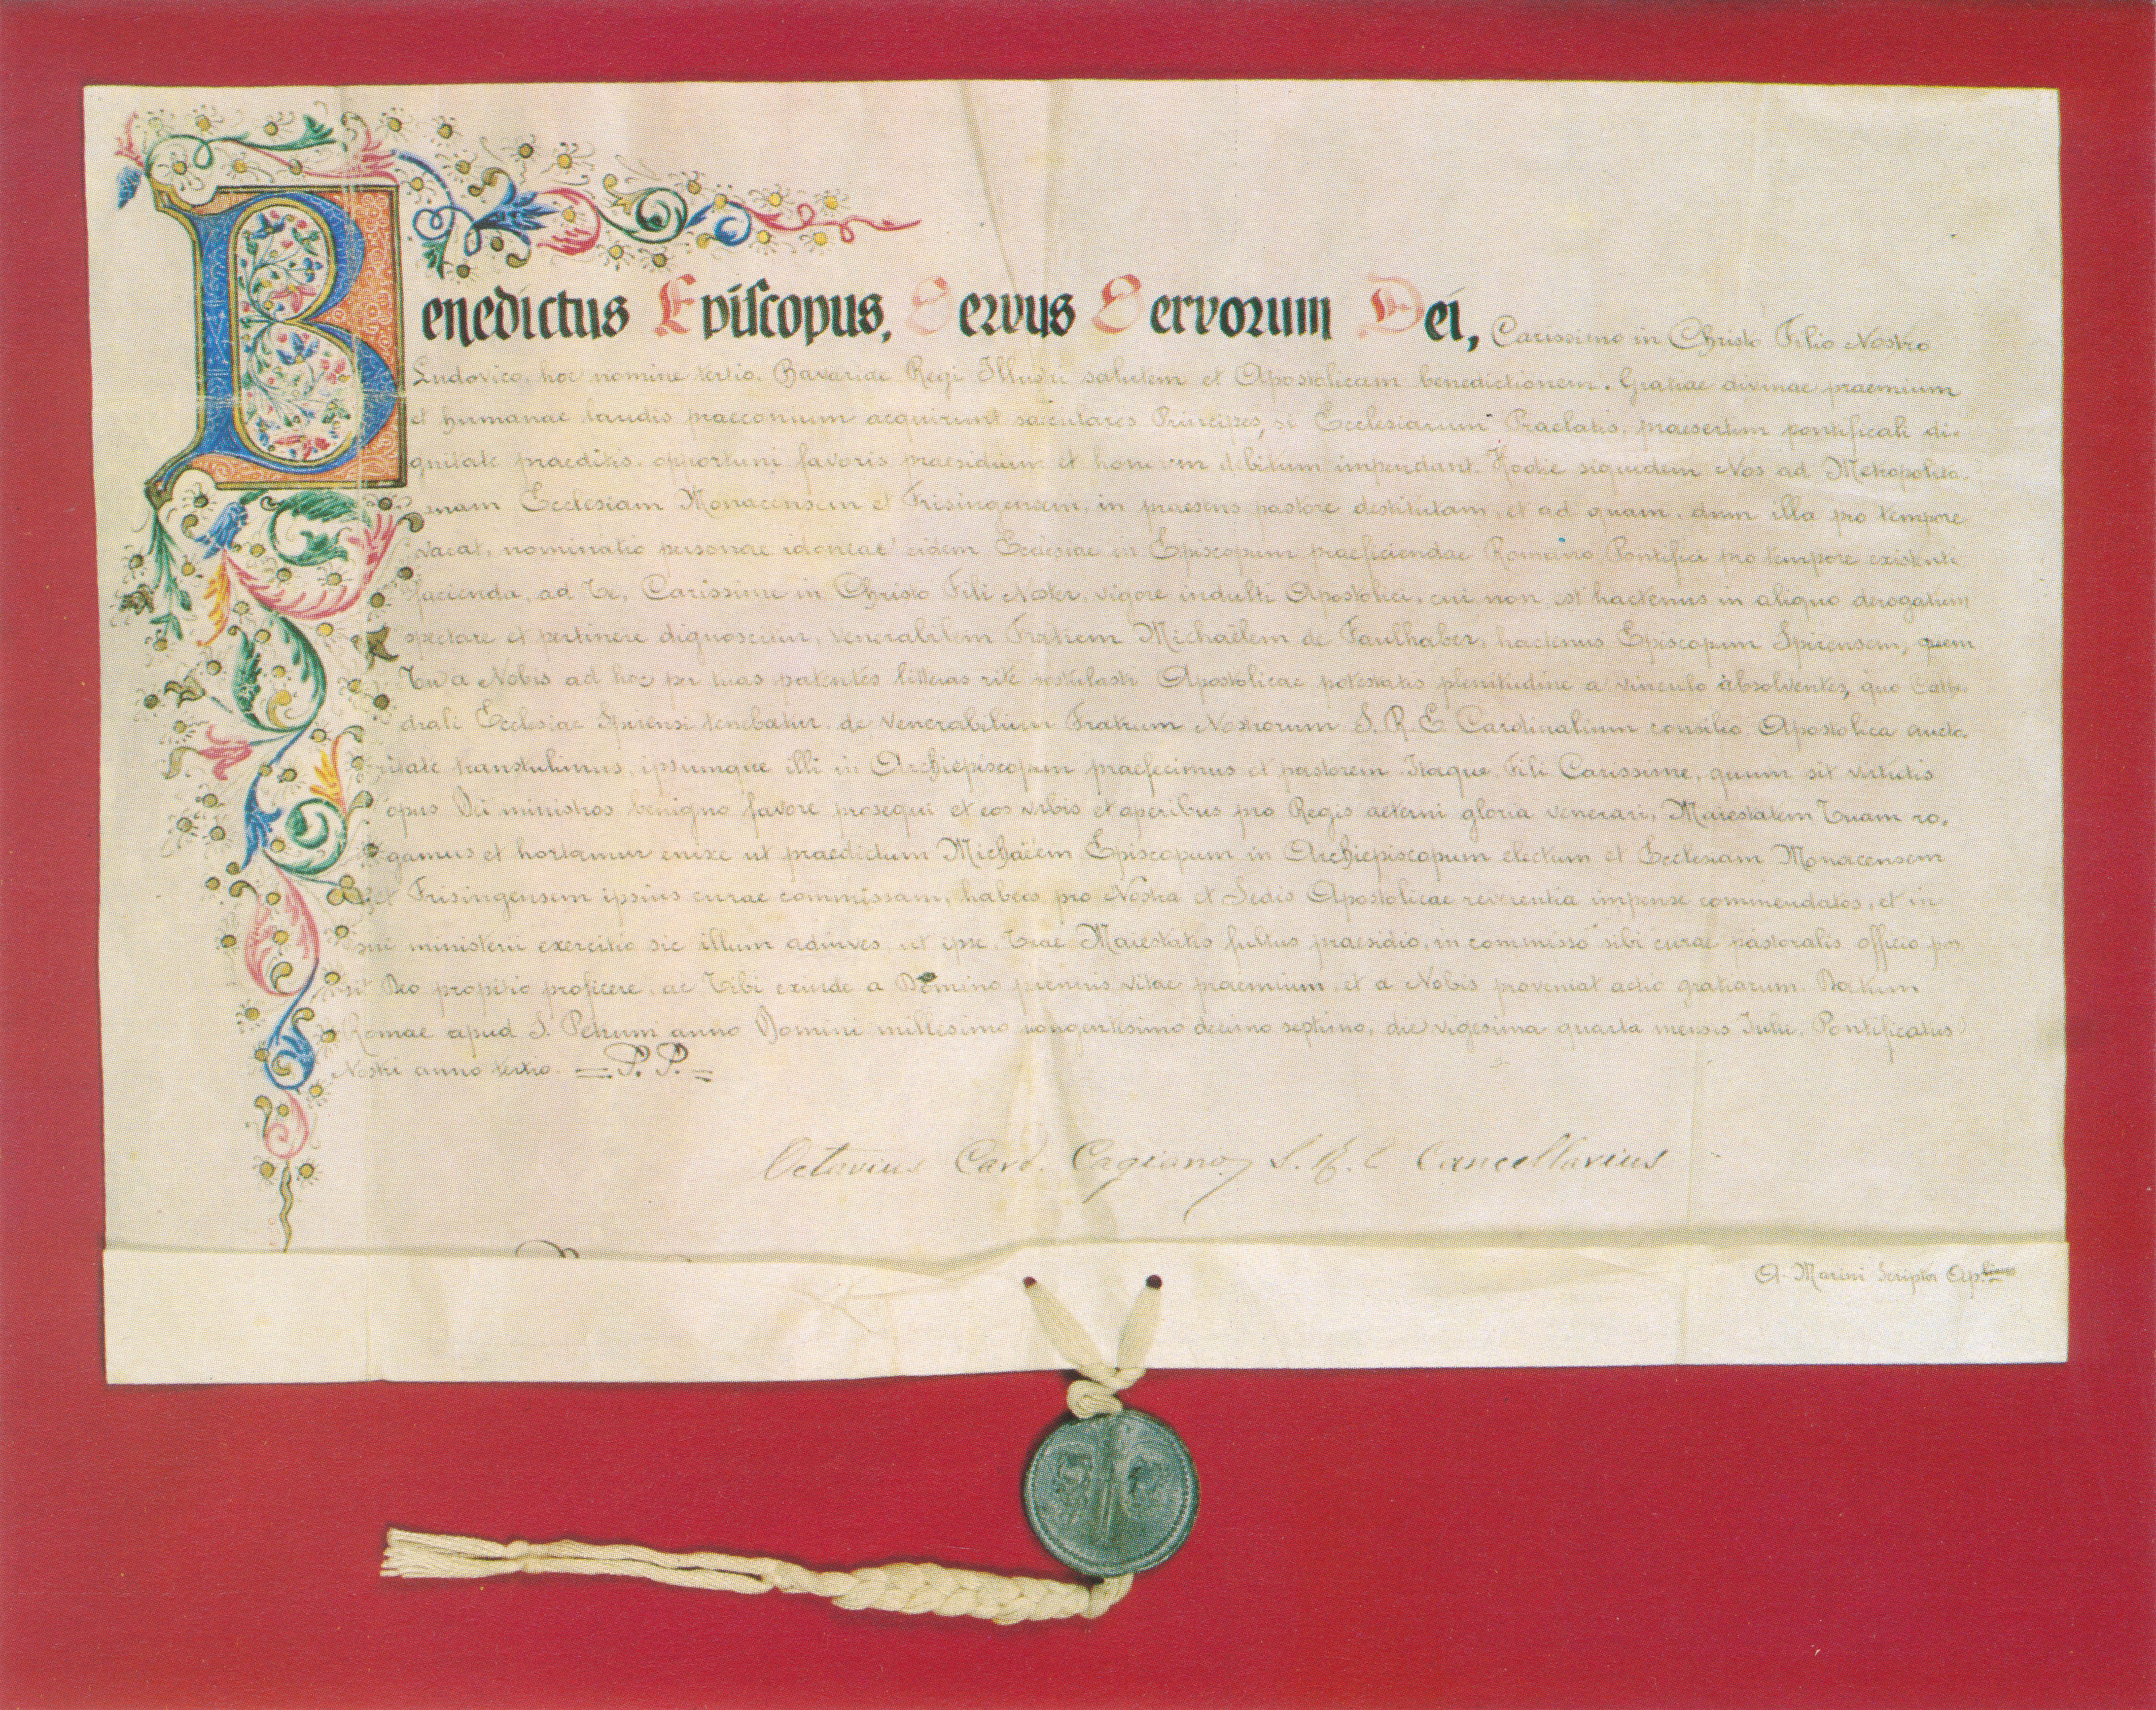 Benedictus Episcopus, Servus Servorum Dei, Carissimo in Christo Filio Nostro
Ludovico, hoc nomine tertio, Bavariae Regi Illustri salutem et Apostolicam benedictionem. Gratiae divinae praemium
et humanae laudis praeconium acquirunt saeculares Principes, si Ecclesiarum Praelatis, praesertim pontificali di-
gnitate praeditis, opportuni favoris praesidium et honorem debitum impendant. Hodie siquidem Nos ad Metropolita-
nam Ecclesiam Monacensem et Frisingensem, in praesens pastore destitutam, et ad quam, dum illa pro tempore
vacat, nominatio personae idoneae eidem Ecclesiae in Episcopum praeficiendae Romano Pontifici pro tempore existenti
facienda, ad Te, Carissime in Christo Fili Noster, vigore indulti Apostolici, cui non est hactenus in aliquo derogatum
spectare et pertinere dignoscitur, venerabilem Fratrem Michaëlem de Faulhaber, hactenus Episcopum Spirensem, quem
Tu a Nobis ad hoc per tuas patentes litteras rite postulasti Apostolicae potestatis plenitudine a vinculo absolventes, quo Cathe-
drali Ecclesiae Spirensi tenebatur, de Venerabilium Fratrum Nostrorum S. R. E. Cardinalium consilio Apostolica aucto-
ritate transtulimus, ipsumque illi in Archiepiscopum praefecimus et pastorem. Itaque, Fili Carissime, quum sit virtutis
opus Dei ministros benigno favore prosequi et eos verbis et operibus pro Regis aeterni gloria venerari, Maiestatem Tuam ro-
gamus et hortamur enixe ut praedictum Michaëlem Episcopum in Archiepiscopum electum et Ecclesiam Monacensem
et Frisingensem ipsius curae commissam, habeas pro Nostra et Sedis Apostolicae reverentia impense commendatos, et in
sui ministerii exercitio sic illum adiuves, ut ipse, Tuae Maiestatis fultus praesidio, in commisso sibi curae pastoralis officio pos-
sit Deo propitio proficere, ac Tibi exinde a Domino perennis vitae praemium, et a Nobis proveniat actio gratiarum. Datum
Romae apud S. Petrum anno Domini millesimo nongentesimo decimo septimo, die vigesima quarta mensis Iulii, Pontificatus
Nostri anno tertio. = P. P. =
Octavius Card. Cagiano, S. R. E. Cancellarius
A. Marini Scriptor Ap.licus